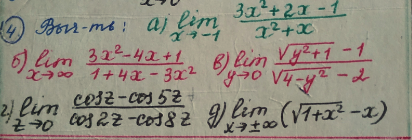 x→0
④ Выч-ть: а) lim x→-1 (3x²+2x-1)/(x²+x)
б) lim x→∞ (3x²-4x+1)/(1+4x-3x²) в) lim y→0 (√(y²+1) -1)/(√(4-y²) -2)
г) lim z→0 (cosz-cos5z)/(cos2z-cos8z) д) lim x→±∞ (√(1+x²) -x)